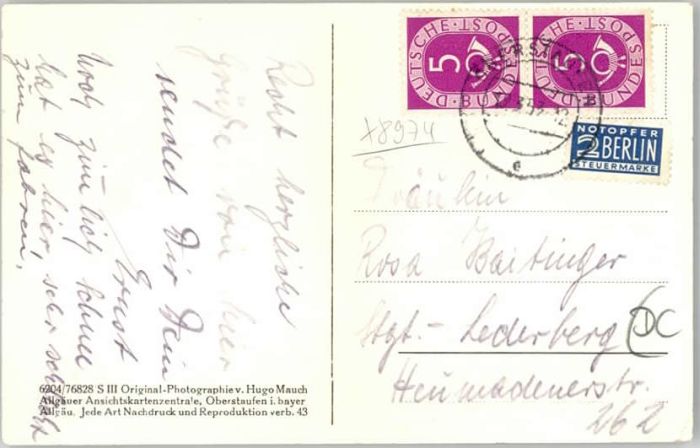 Recht herzliche
Grüße von hier
sendet Dir Dein
Ernst
Noch zimlich Schnee
hat es hier, sehr schön
zum fahren.
6204/76828 S III Original-Photographie v. Hugo Mauch
Allgäuer Ansichtskartenzentrale, Oberstaufen i. bayer
Allgäu. Jede Art Nachdruck und Reproduktion verb. 43
DEUTSCHE BUNDESPOST
5
DEUTSCHE BUNDESPOST
5
NOTOPFER
2 BERLIN
STEUERMARKE
+8974
Fräulein
Rosa Baitinger
Stgt.- Lederberg
DC
Heumadenerstr.
262